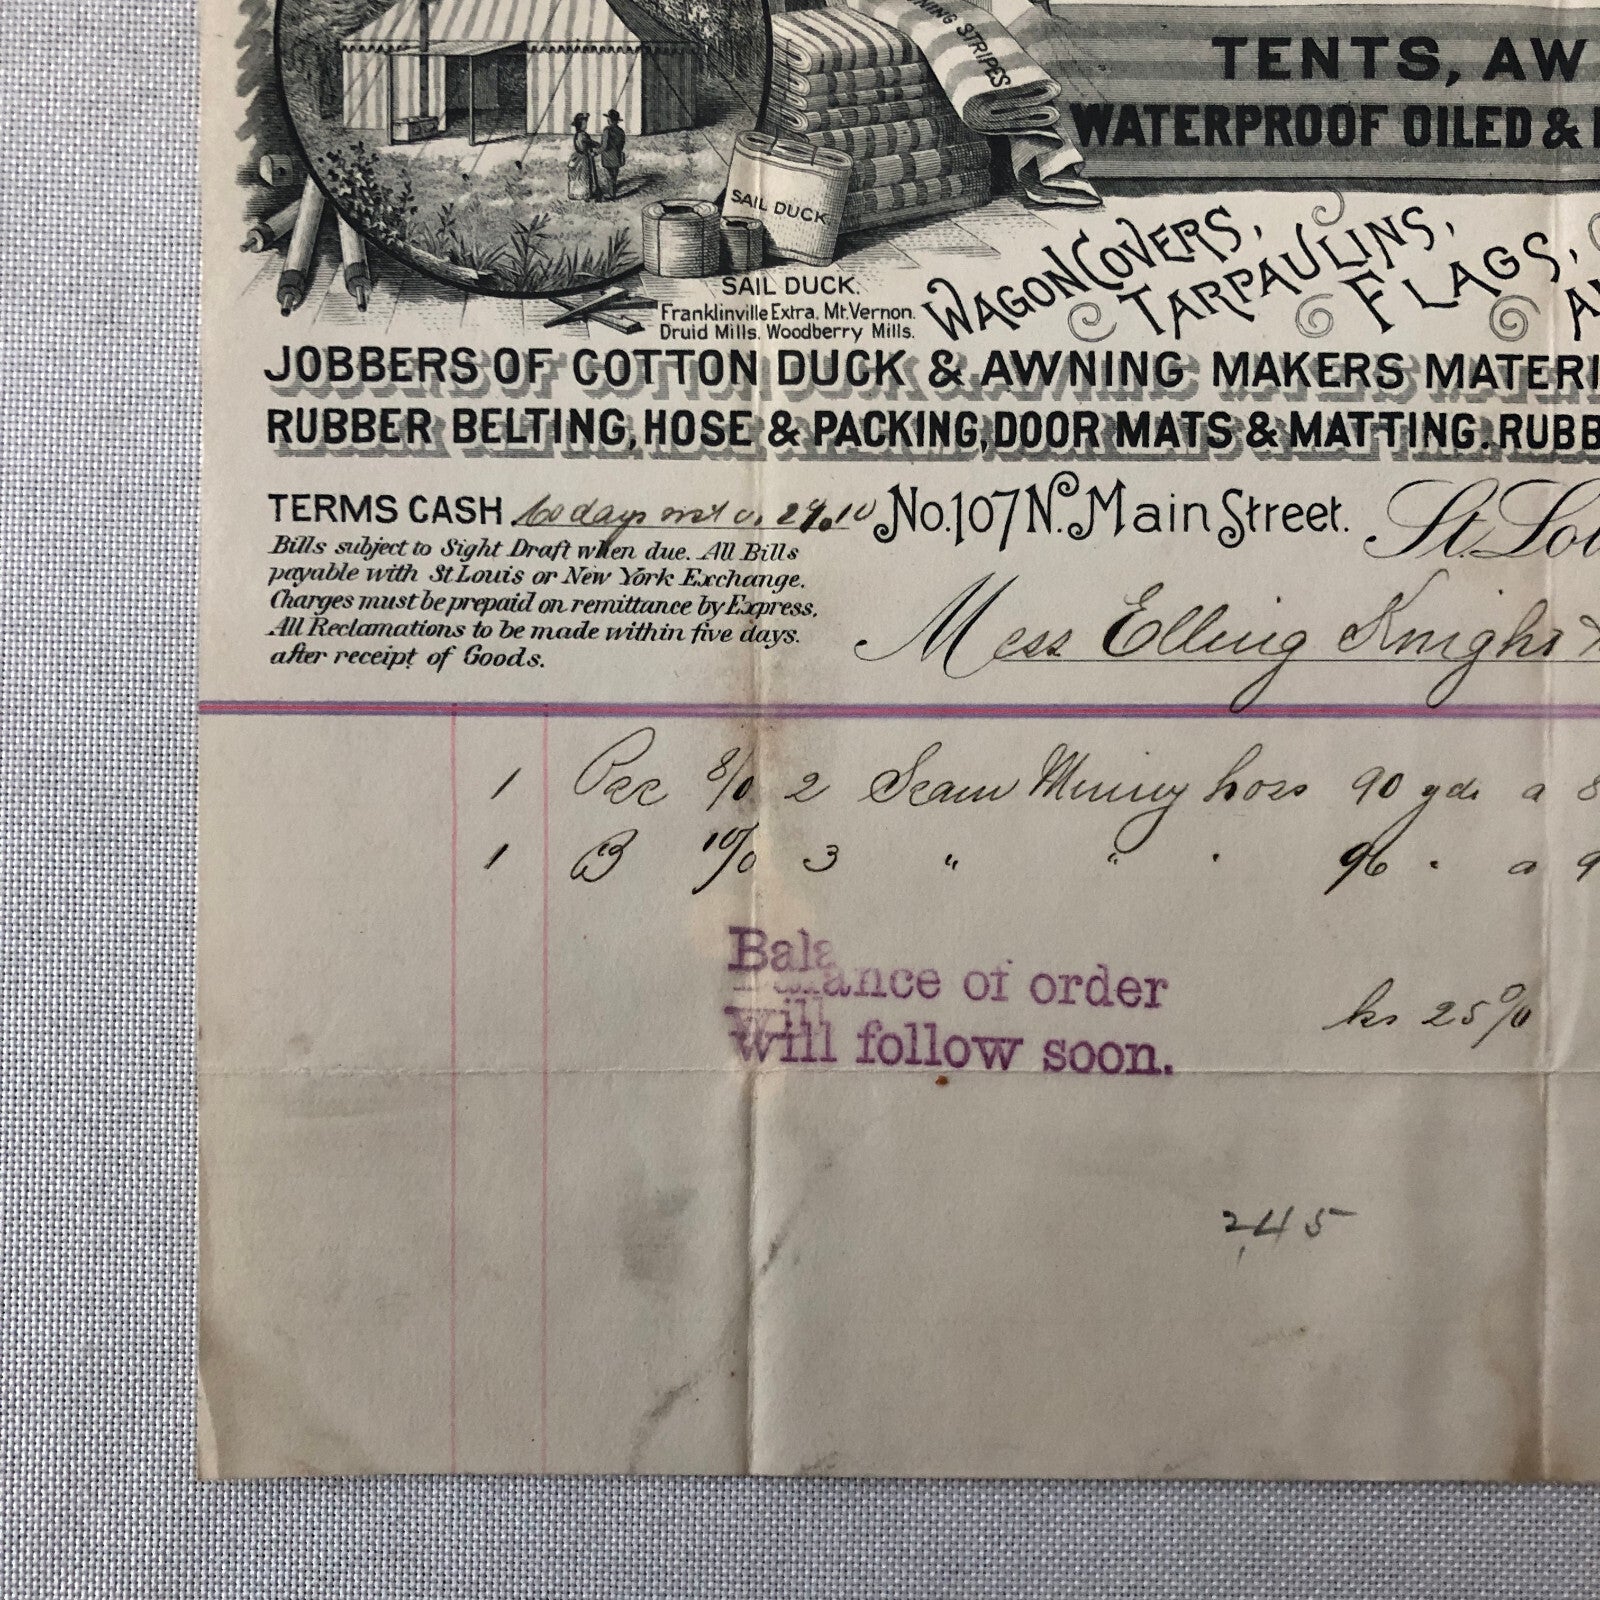 NING STRIPES
TENTS, AW
WATERPROOF OILED &
SAIL DUCK
SAIL DUCK.
Franklinville Extra. Mt. Vernon.
Druid Mills. Woodberry Mills.
WAGON COVERS,
TARPAULINS,
FLAGS,
JOBBERS OF COTTON DUCK & AWNING MAKERS MATERI
RUBBER BELTING, HOSE & PACKING, DOOR MATS & MATTING. RUBB
TERMS CASH 60 days
No. 107 N. Main Street. St. Lou
Bills subject to Sight Draft when due. All Bills
payable with St Louis or New York Exchange.
Charges must be prepaid on remittance by Express.
All Reclamations to be made within five days.
after receipt of Goods.
Mess Elling Knight
1 Pce 8/0 2 Seam Mining hose 90 yds a 8
1 B 10/0 3 " " " 96 " a 9
Bala
Balance of order
will
will follow soon.
25%
245